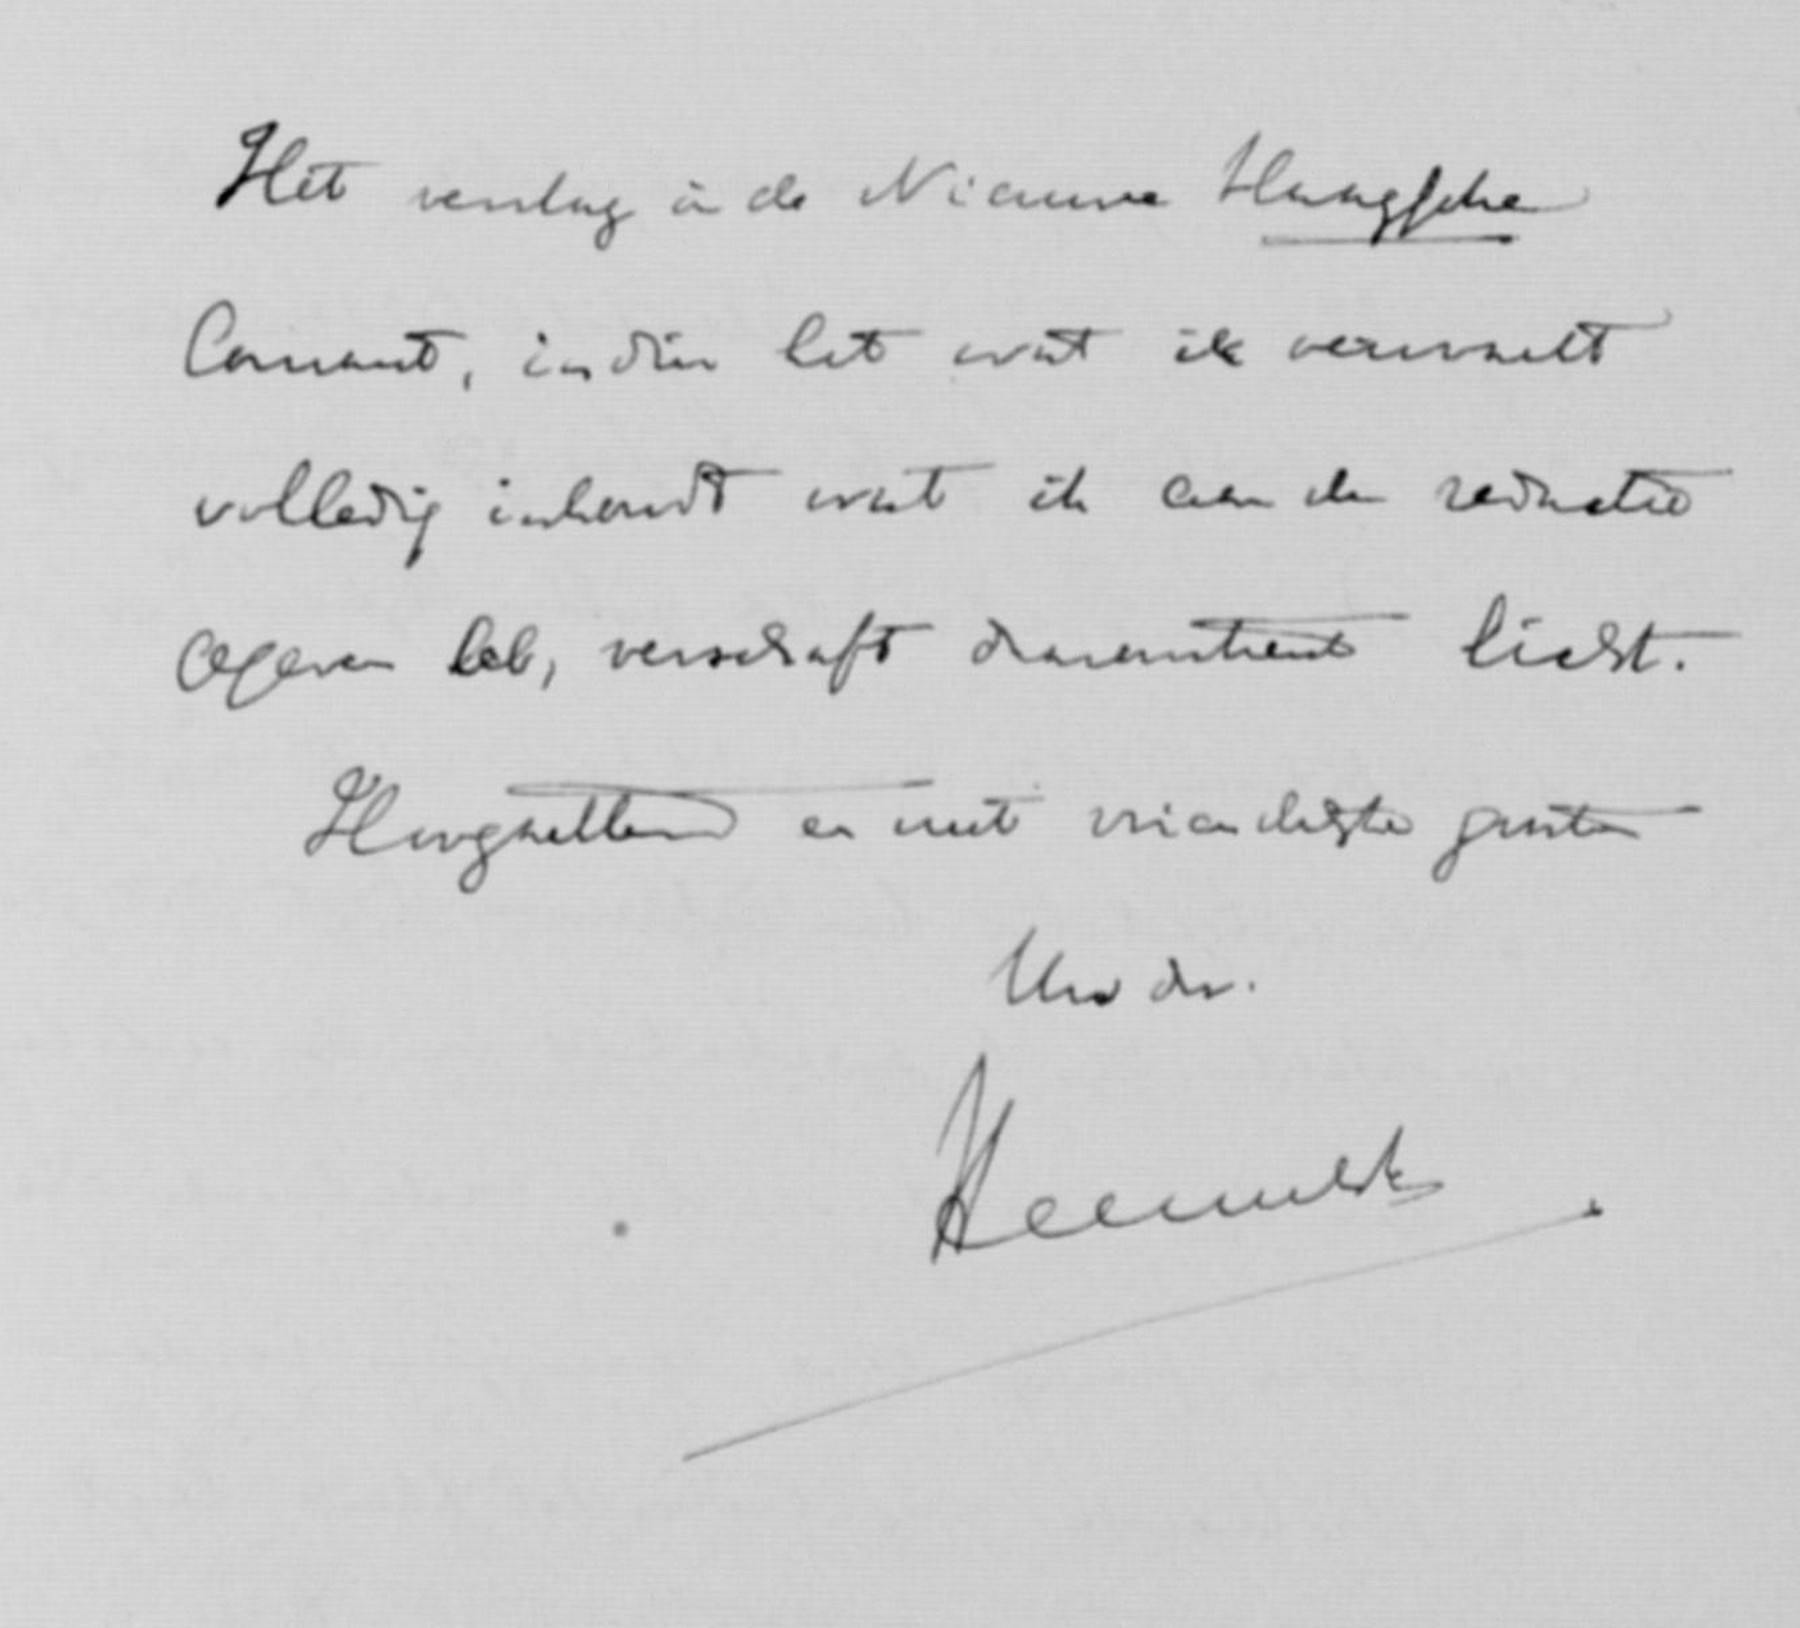 Het verslag in de Nieuwe Haagsche
Courant, indien het wat ik verwacht
volledig inhoudt wat ik aan de redactie
opgegeven heb, verschaft daaromtrent licht.
Hoogachtend en met vriendelijke groeten
Uw dr.